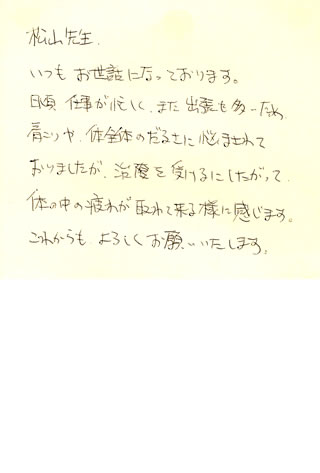 松山先生、
いつも お世話になっております。
日頃 仕事が忙しく、また 出張も多いため
肩こりや、体全体のだるさに 悩まされて
おりましたが、治療を受けるにしたがって、
体の中の疲れが取れて来る様に感じます。
これからも よろしくお願いいたします。